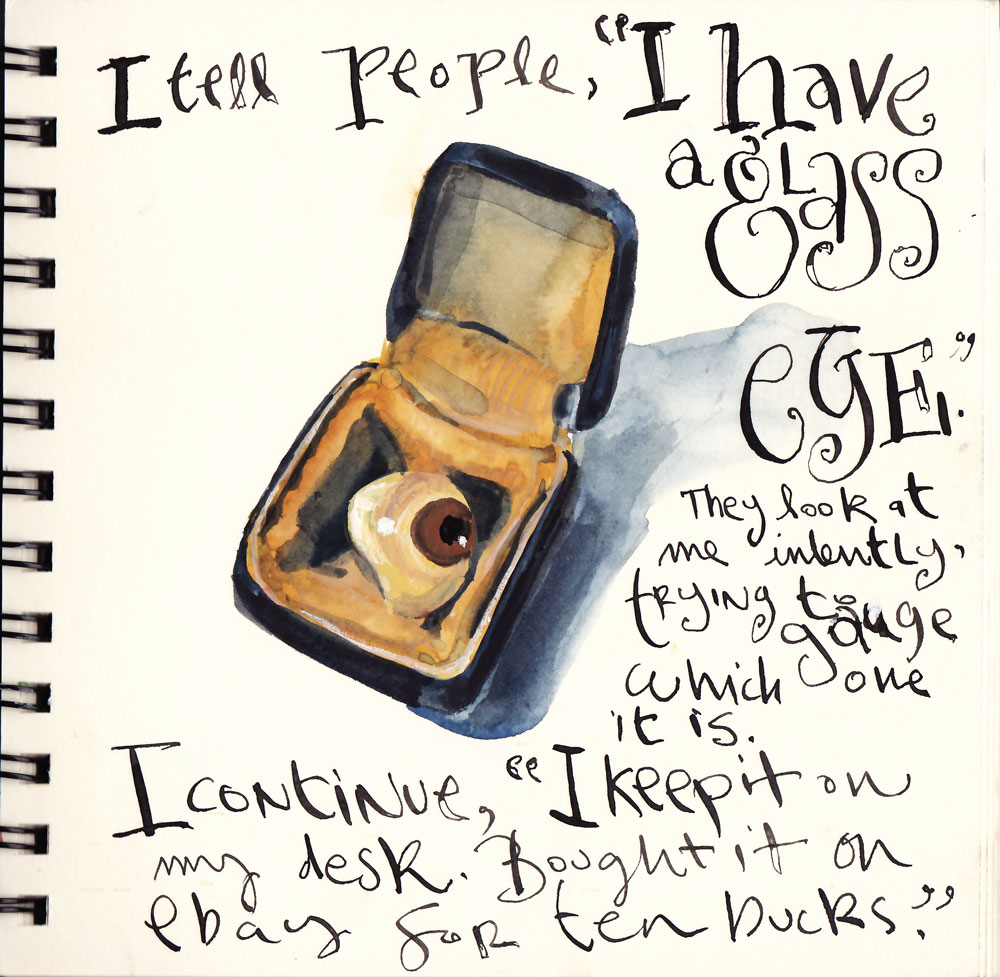 I tell people, "I have
a glass
eye."
They look at
me intently,
trying to
gauge
which one
it is.
I continue, "I keep it on
my desk. Bought it on
ebay for ten bucks."